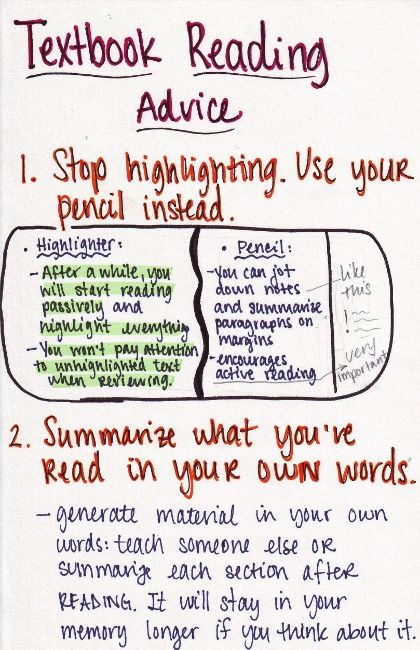 Textbook Reading
Advice
1. Stop highlighting. Use your
pencil instead.
• Highlighter:
- After a while, you
will start reading
passively and
highlight everything
- You won't pay attention
to unhighlighted text
when reviewing.
• Pencil:
- you can jot
down notes
and summarize
paragraphs on
margins
- encourages
active reading
like
this
!
very
important
2. Summarize what you've
read in your own words.
- generate material in your own
words: teach someone else or
summarize each section after
READING. It will stay in your
memory longer if you think about it.